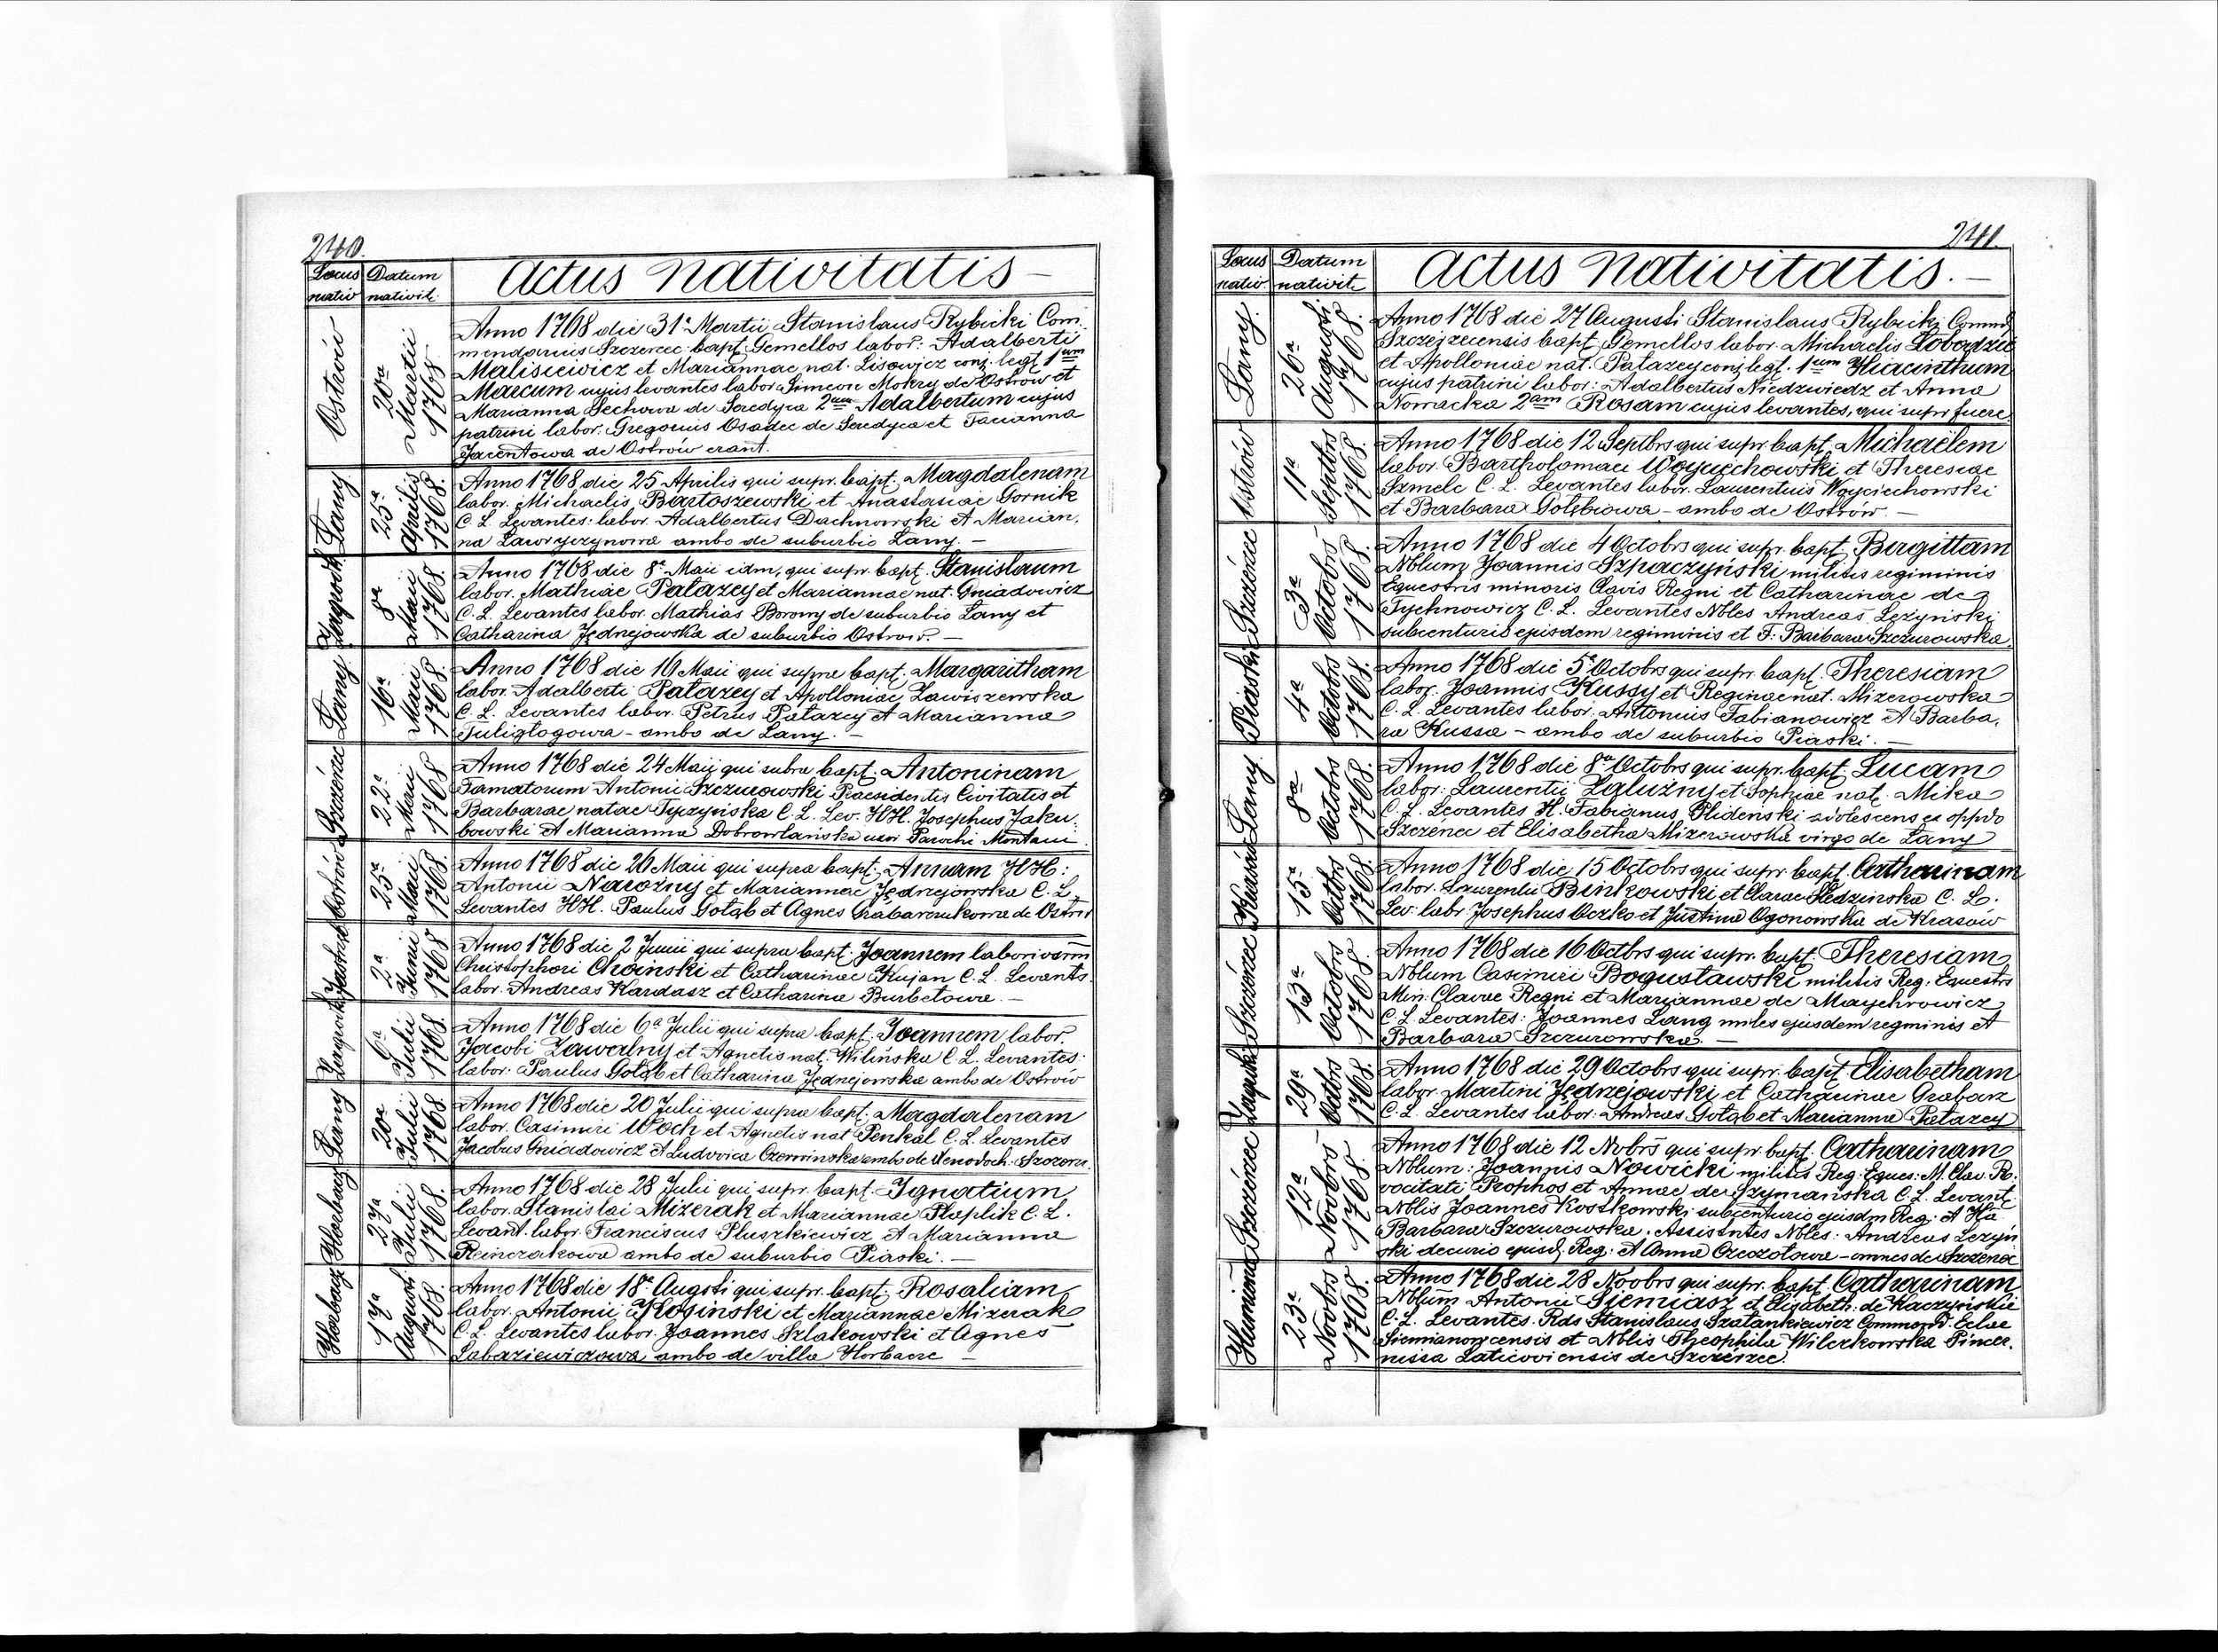 240.
Locus nativ
Datum nativit.
Actus nativitatis
Ostrów
20a Martii 1768
Anno 1768 die 31a Martii Stanislaus Rybicki Com.
mendarius Szczerec bapt. Gemellos labor: Adalberti
Malisiewicz et Mariannae nat. Lisowicz conj. legt 1um
Marcum cujus levantes labor Simeon Mokry de Ostrów et
Marianna Lechowa de Seredyca 2um Adalbertum cujus
patrini labor. Gregorius Osadec de Seredyca et Tacianna
Jacentowa de Ostrów erant.
Łany
25a Aprilis 1768.
Anno 1768 die 25 Aprilis qui supr. bapt. Magdalenam
labor. Michaelis Bartoszewski et Anastasiae Gornik
C. L. Levantes: labor. Adalbertus Dachnowski et Marian,
na Ławryczynowa ambo de suburbio Łany. —
Zagrodk
8a Maii 1768.
Anno 1768 die 8a Maii idm, qui supr. bapt. Stanislaum
labor. Mathiae Patazey et Mariannae nat. Gniadowicz
C. L. Levantes labor. Mathias Borowy de suburbio Łany et
Catharina Jędrzejowska de suburbio Ostrow. —
Łany
16a Maii 1768.
Anno 1768 die 16 Maii qui supra bapt. Margaritham
labor. Adalberti Patazey et Apolloniae Zawiszewska
C. L. Levantes labor. Petrus Patazey et Marianna
Tuligłogowa – ambo de Łany. —
Szczérzec
22a Maii 1768
Anno 1768 die 24 Maij qui subra bapt. Antoninam
Famatorum Antonii Szczurowski Praesidentis Civitatis et
Barbarae natae Tyczyńska C. L. Lev. HH. Josephus Jaku,
bowski et Marianna Dobrowlańska uxor Parochi Montani
Ostrów
25a Maii 1768
Anno 1768 die 26 Maii qui supra bapt. Annam HH:
Antonii Narozny et Mariannae Jędrzejowska C. L.
Levantes HH. Paulus Gołąb et Agnes Grabarczukowa de Ostrów
2a Junii 1768
Anno 1768 die 2 Junii qui supra bapt. Joannem laboriosm
Christophori Choinski et Catharinae Kujan C. L. Levants.
labor. Andreas Kardasz et Catharina Burbetowa. —
Zagrodk
6a Julii 1768.
Anno 1768 die 6a Julii qui supra bapt. Joannem labor.
Jacobi Zawalny et Agnetis nat. Wilińska C. L. Levantes:
labor. Paulus Gołąb et Catharina Jędrzejowska ambo de Ostrów
Łany
20a Julii 1768.
Anno 1768 die 20 Julii qui supra bapt. Magdalenam
labor. Casimiri Woch et Agnetis nat Penkal C. L. Levantes
Jacobus Gniadowicz et Ludovica Czerwinska ambo de Xenodoch. Szczerz.
Horbacz
27a Julii 1768.
Anno 1768 die 28 Julii qui supr. bapt. Ignatium
labor. Stanislai Mizerak et Mariannae Płaplik C. L.
Levant. labor. Franciscus Pluszkiewicz et Marianna
ambo de suburbio Piaski. —
Horbacz
17a Augusti 1768.
Anno 1768 die 18a Augsti qui supr. bapt. Rosaliam
labor. Antonii Kłosinski et Mariannae Mizerak
C. L. Levantes labor. Joannes Szlakowski et Agnes
Łabaziewiczowa ambo de villa Horbacze —
241.
Locus nativ.
Datum nativit.
Actus Nativitatis. —
Łany.
26a Augusti. 1768.
Anno 1768 die 27 Augusti Stanislaus Rybicki Commd
Szczeżecensis bapt. Gemellos labor. Michaelis Łobodzic
et Apolloniae nat. Patazey conj. legt. 1um Hiacinthum
cujus patrini labor: Adalbertus Niedzwiedz et Anna
Nowacka 2am Rosam cujus levantes, qui supr fuere.
Ostrów
11a Septbrs 1768.
Anno 1768 die 12 Septbrs qui supr. bapt. Michaëlem
labor. Bartholomaei Woyciechowski et Theresiae
Szmelc C. L. Levantes labor. Laurentius Woyciechowski
et Barbara Gołębiowa – ambo de Ostrów. —
Szczérzec
3a Octobrs 1768.
Anno 1768 die 4 Octobrs qui supr. bapt. Birgittam
Nblum Joannis Szpaczyński militis regiminis
Equestris minoris Clavis Regni et Catharinae de
Tychnowicz C. L. Levantes Nbles Andreas Leżyński
subcenturio ejusdem regiminis et F. Barbara Szczurowska.
Piaski
4a Octobrs 1768.
Anno 1768 die 5a Octobrs qui supr. bapt. Theresiam
labor. Joannis Kussy et Reginae nat. Mizerowska
C. L. Levantes labor. Antonius Fabianowicz et Barba,
ra Kussa – ambo de suburbio Piaski. —
Łany
8a Octobrs 1768.
Anno 1768 die 8a Octobrs qui supr. bapt. Lucam
labor. Laurentii Zaluzny et Sophiae nat. Mika
C. L. Levantes H. Fabianus Hlidenski adolescens ex oppdo
Szczérzec et Elisabetha Mizerowska virgo de Łany
Krasów
15a Octbrs 1768.
Anno 1768 die 15 Octobrs qui supr. bapt. Catharinam
labor. Laurentii Binkowski et Clarae Sledzinska C. L.
Lev. labr. Josephus Oczko et Justina Ogonowska de Krasow
Szczérzec
13a Octobrs 1768.
Anno 1768 die 16 Octbrs qui supr. bapt. Theresiam
Nblum Casimiri Bogusławski militis Reg. Equestrs
Min. Clavae Regni et Mariannae de Maychrowicz
C. L. Levantes: Joannes Lang miles ejusdem regminis et
Barbara Szczurowska. —
29a Octbrs 1768.
Anno 1768 die 29 Octobrs qui supr. bapt. Elisabetham
labor. Martini Jędrzejowski et Catharinae Grabarz
C. L. Levantes labor. Andreas Gołąb et Marianna Patazey
Szczérzec
12a Novbrs 1768.
Anno 1768 die 12 Nvbrs qui supr. bapt. Catharinam
Nblum: Joannis Nowicki militis Reg. Eques: M. Clav. R.
vocitati Prophos et Annae de Szymańska C. L. Levant.
Nblis Joannes Kostkowski subcenturio ejusdm Reg. et Ha
Barbara Szczurowska. Assistntes Nbles. Andreas Leżyń
ski decurio ejusd. Reg: et Anna Czeczotowa – omnes de Szczerzec
23a Novbrs 1768.
Anno 1768 die 28 Novbrs qui supr. bapt. Catharinam
Nblum Antonii Siemiasz et Elisabeth. de Kaczyńskie
C. L. Levantes. Rds Stanislaus Szatankiewicz Commend. Eclae
Siemianowcensis et Nblis Theophila Wilczkowska Pincer.
nissa Laticoviensis de Szczérzec.